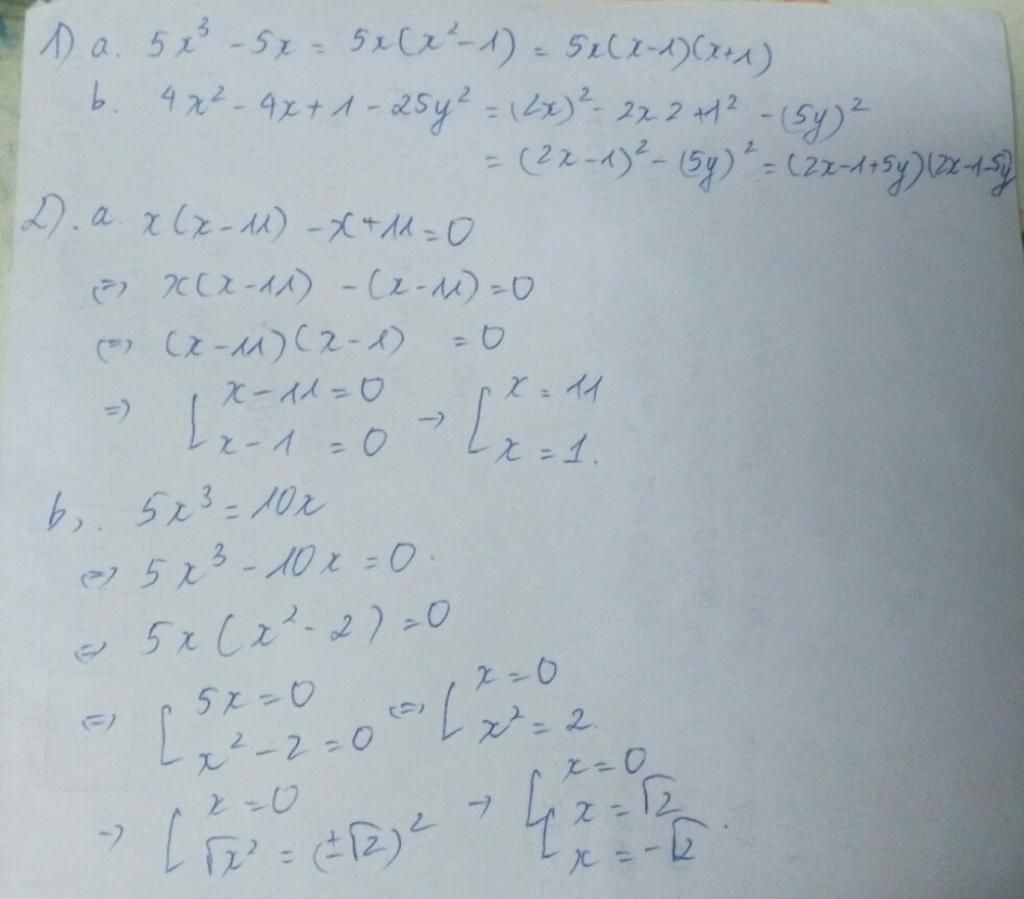 1) a. 5x³ - 5x = 5x(x² - 1) = 5x(x-1)(x+1)
b. 4x² - 4x + 1 - 25y² = (2x)² - 2x.2 + 1² - (5y)²
= (2x - 1)² - (5y)² = (2x-1+5y)(2x-1-5y)
2). a. x(x-11) - x + 11 = 0
(=) x(x-11) - (x-11) = 0
(=) (x-11)(x-1) = 0
=) [ x - 11 = 0 → [ x = 11
x - 1 = 0 x = 1.
b,. 5x³ = 10x
(=) 5x³ - 10x = 0.
(=) 5x(x² - 2) = 0
(=) [ 5x = 0 (=) [ x = 0
x² - 2 = 0 x² = 2.
→ [ x = 0 → [ x = 0
√x² = (±√2)² [ x = √2
x = -√2.